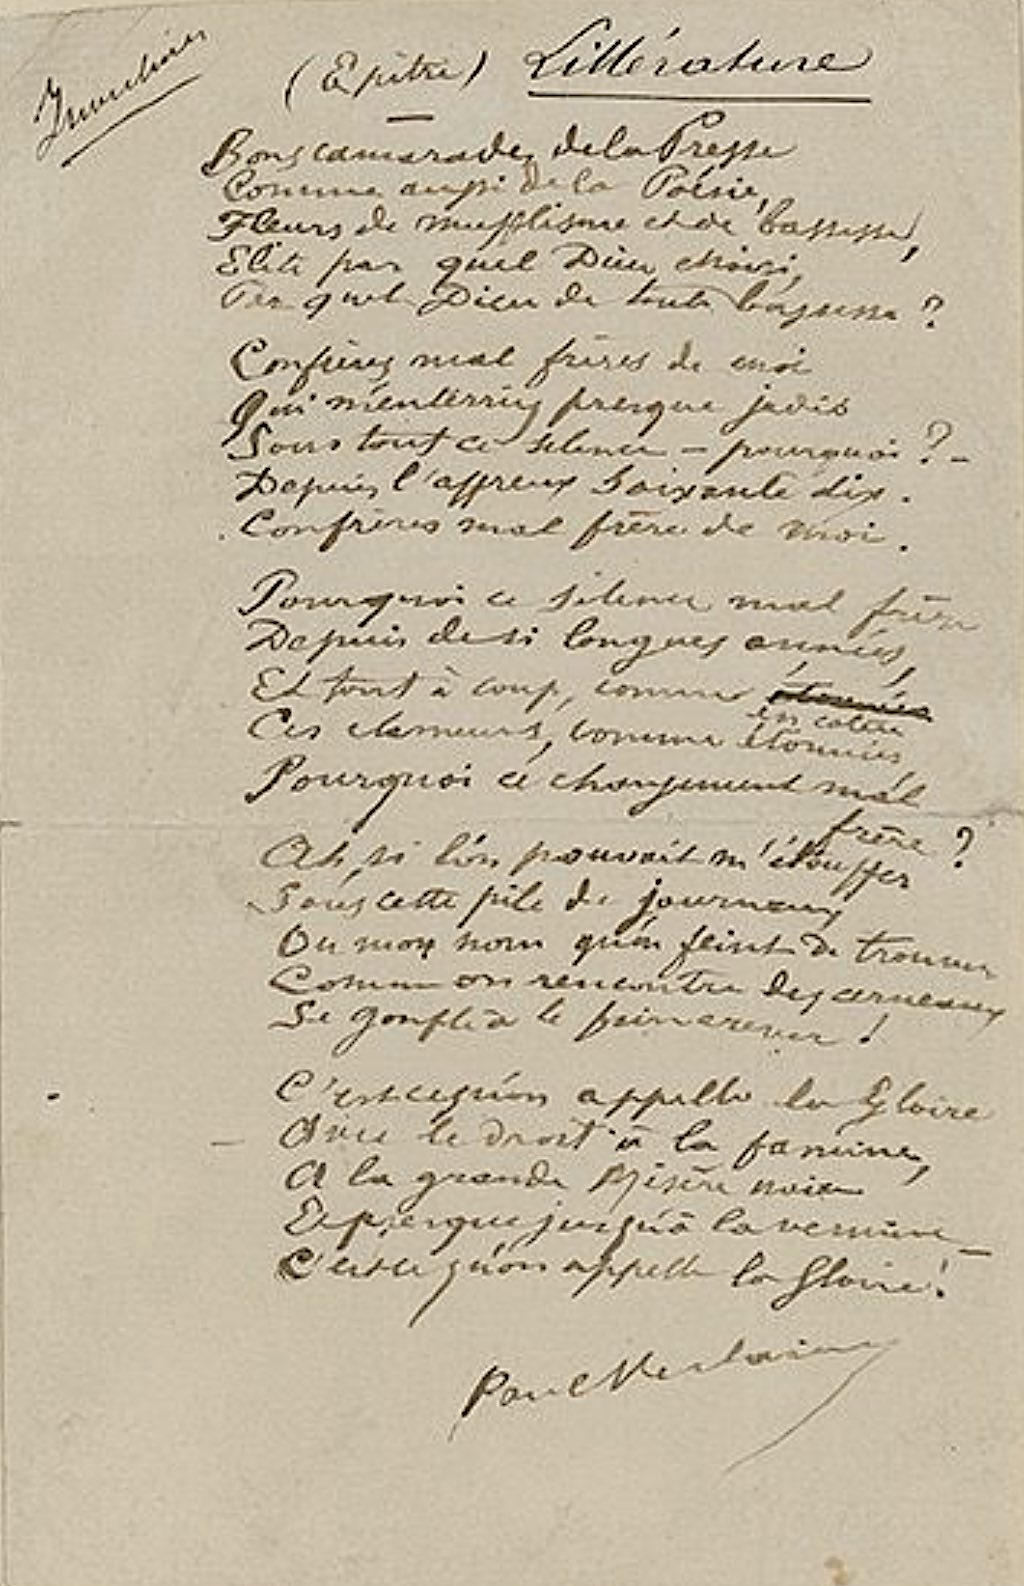 Invectives
(Epitre) Littérature
Bons camarades de la Presse
Comme aussi de la Poésie,
Fleurs de muflisme et de bassesse,
Elite par quel Dieu choisi,
Par quel Dieu de toute bassesse ?
Confrères mal frères de moi
Qui m'enterriez presque jadis
Sous tout ce silence – pourquoi ? –
Depuis l'affreux soixante dix.
Confrères mal frères de moi.
Pourquoi ce silence mal frère
Depuis de si longues années,
Et tout à coup, comme
en colère
Ces clameurs, comme étonnées
Pourquoi ce changement mal
frère ?
Ah, si l'on pouvait m'étouffer
Sous cette pile de journaux
Ou mon nom qu'on feint de trouver
Comme on rencontre des cerneaux
Se gonfle à le faire crever !
C'est ce qu'on appelle la Gloire
– Avec le droit à la famine,
A la grande Misère noire
Et presque jusqu'à la vermine –
C'est ce qu'on appelle la Gloire !
Paul Verlaine